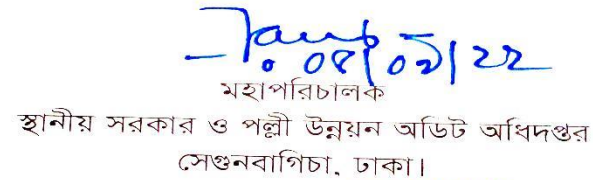 ০৪/০৯/২২
মহাপরিচালক
স্থানীয় সরকার ও পল্লী উন্নয়ন অডিট অধিদপ্তর
সেগুনবাগিচা, ঢাকা।